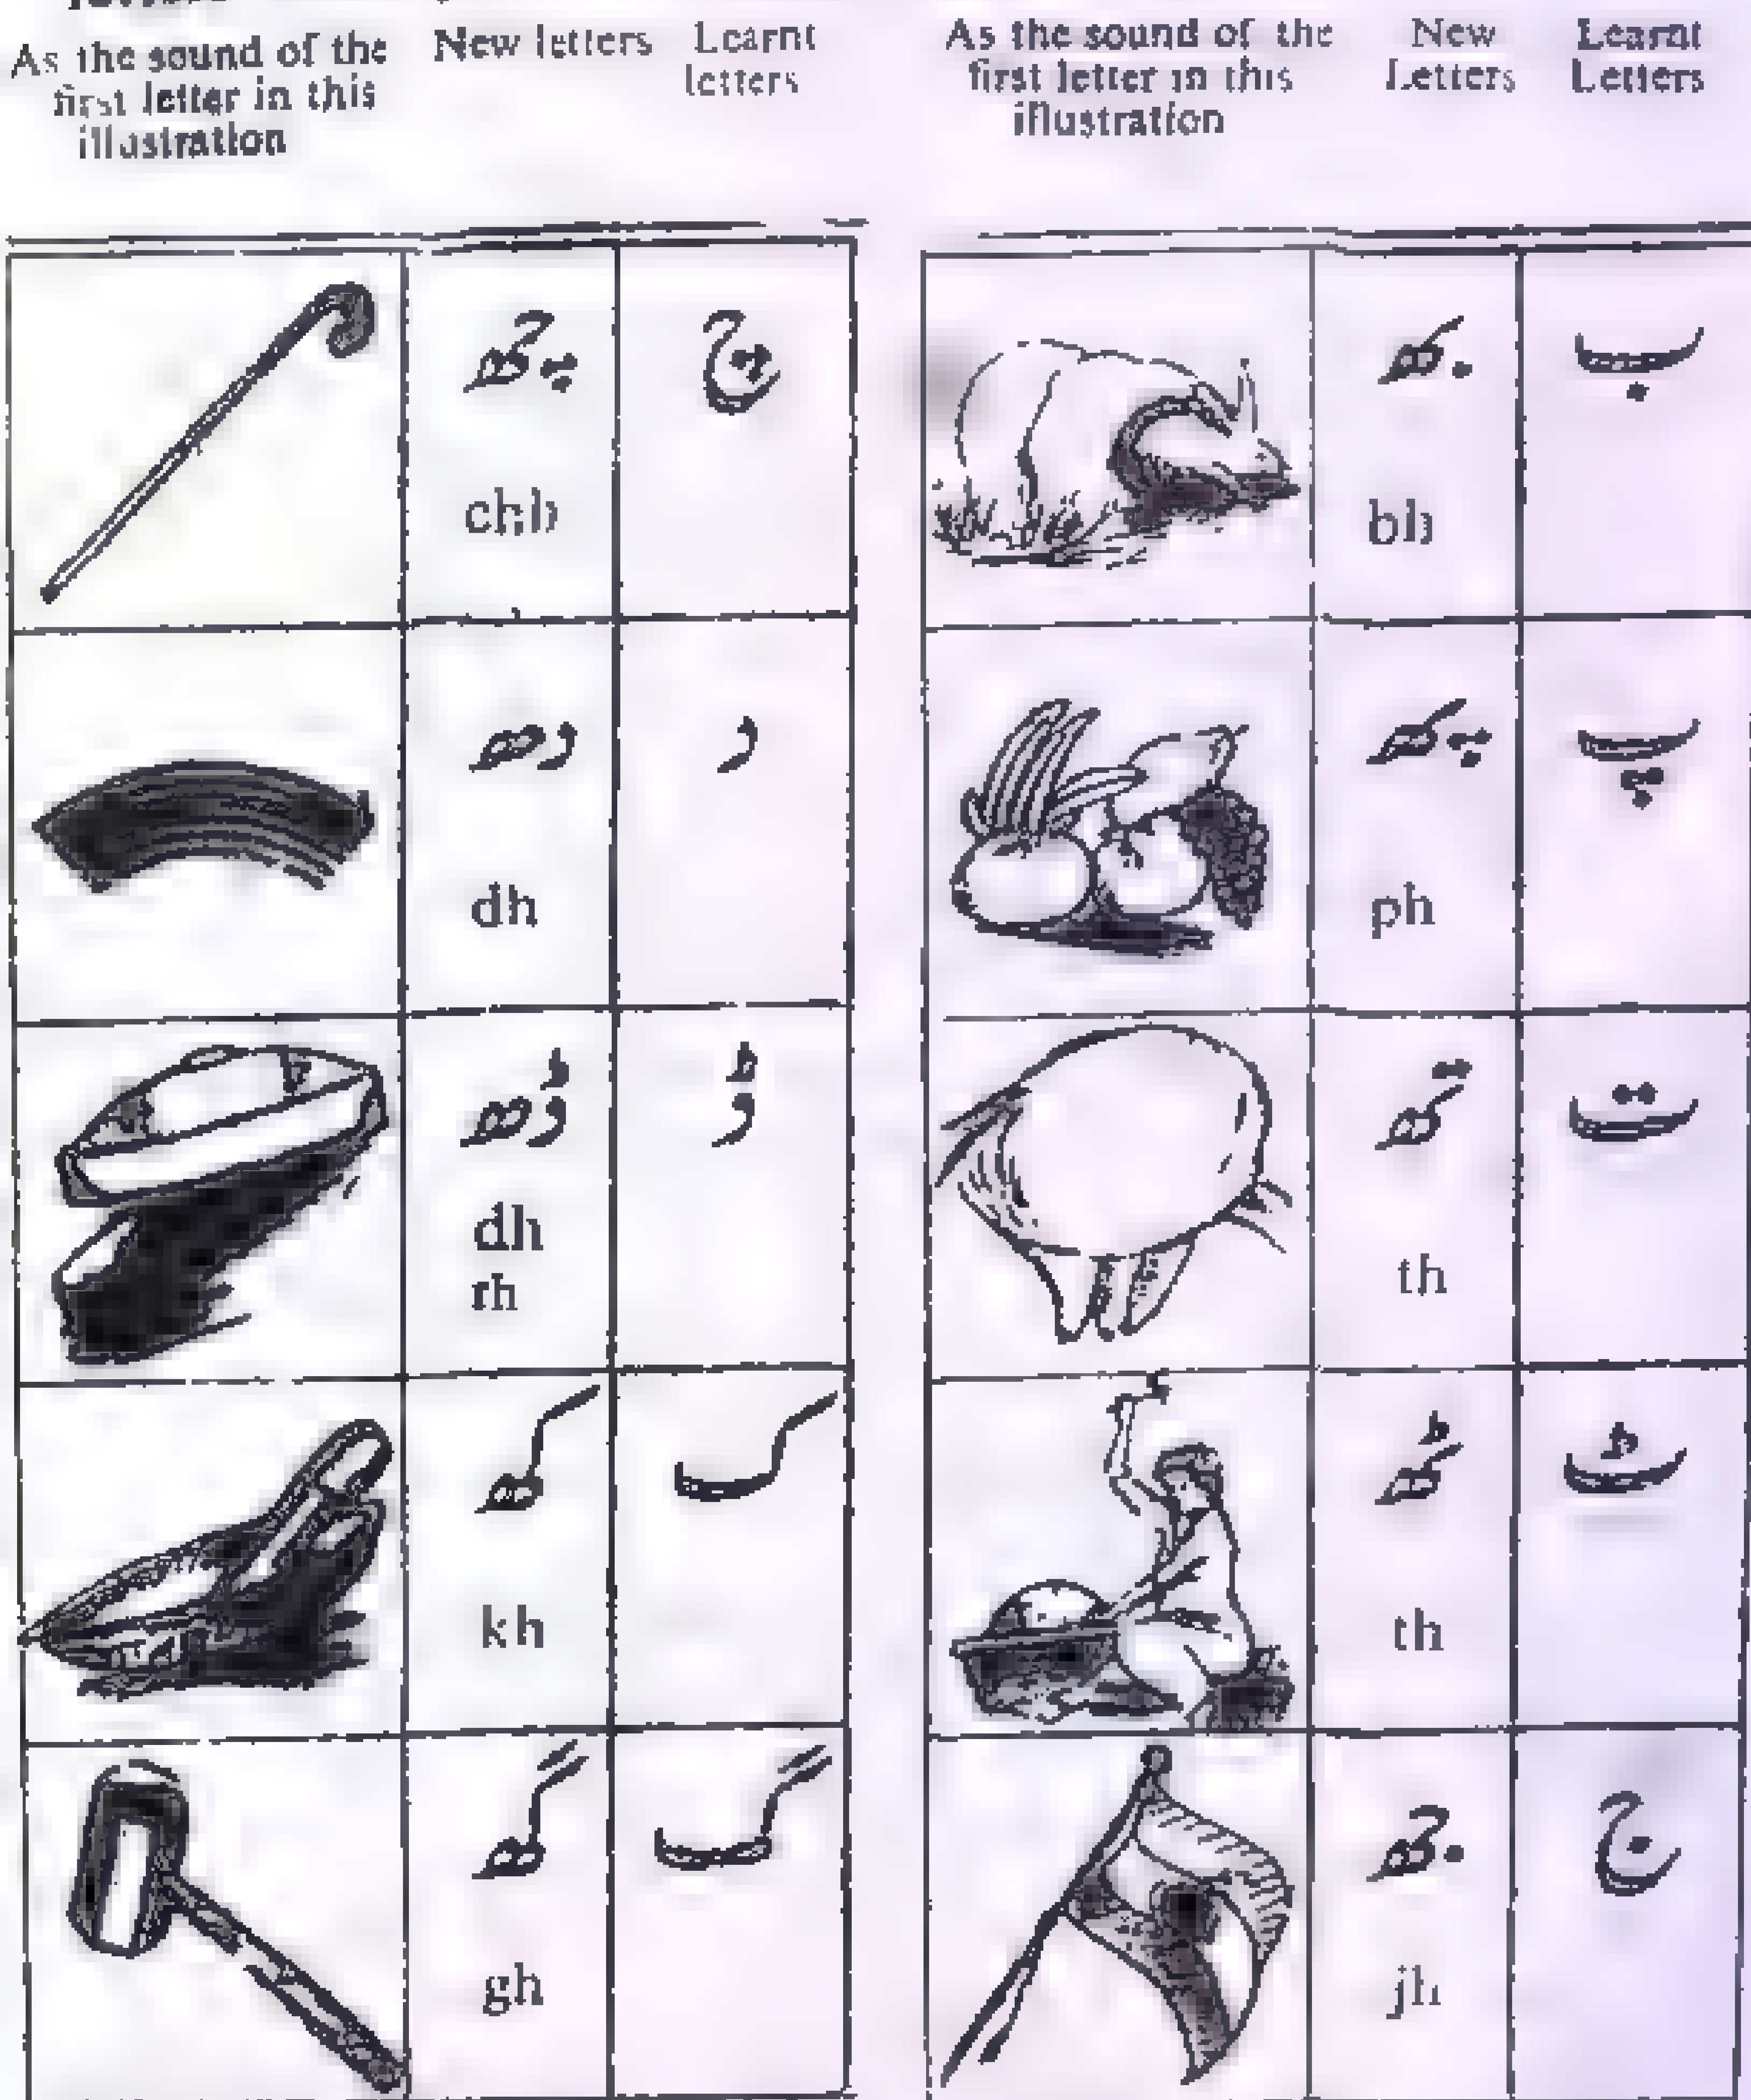 As the sound of the
first letter in this
illustration
New letters
Learnt
letters
چھ
چ
chh
دھ
د
dh
ڈھ
ڈ
dh
rh
کھ
ک
kh
گھ
گ
gh
As the sound of the
first letter in this
illustration
New
Letters
Learnt
Letters
بھ
ب
bh
پھ
پ
ph
تھ
ت
th
ٹھ
ٹ
th
جھ
ج
jh